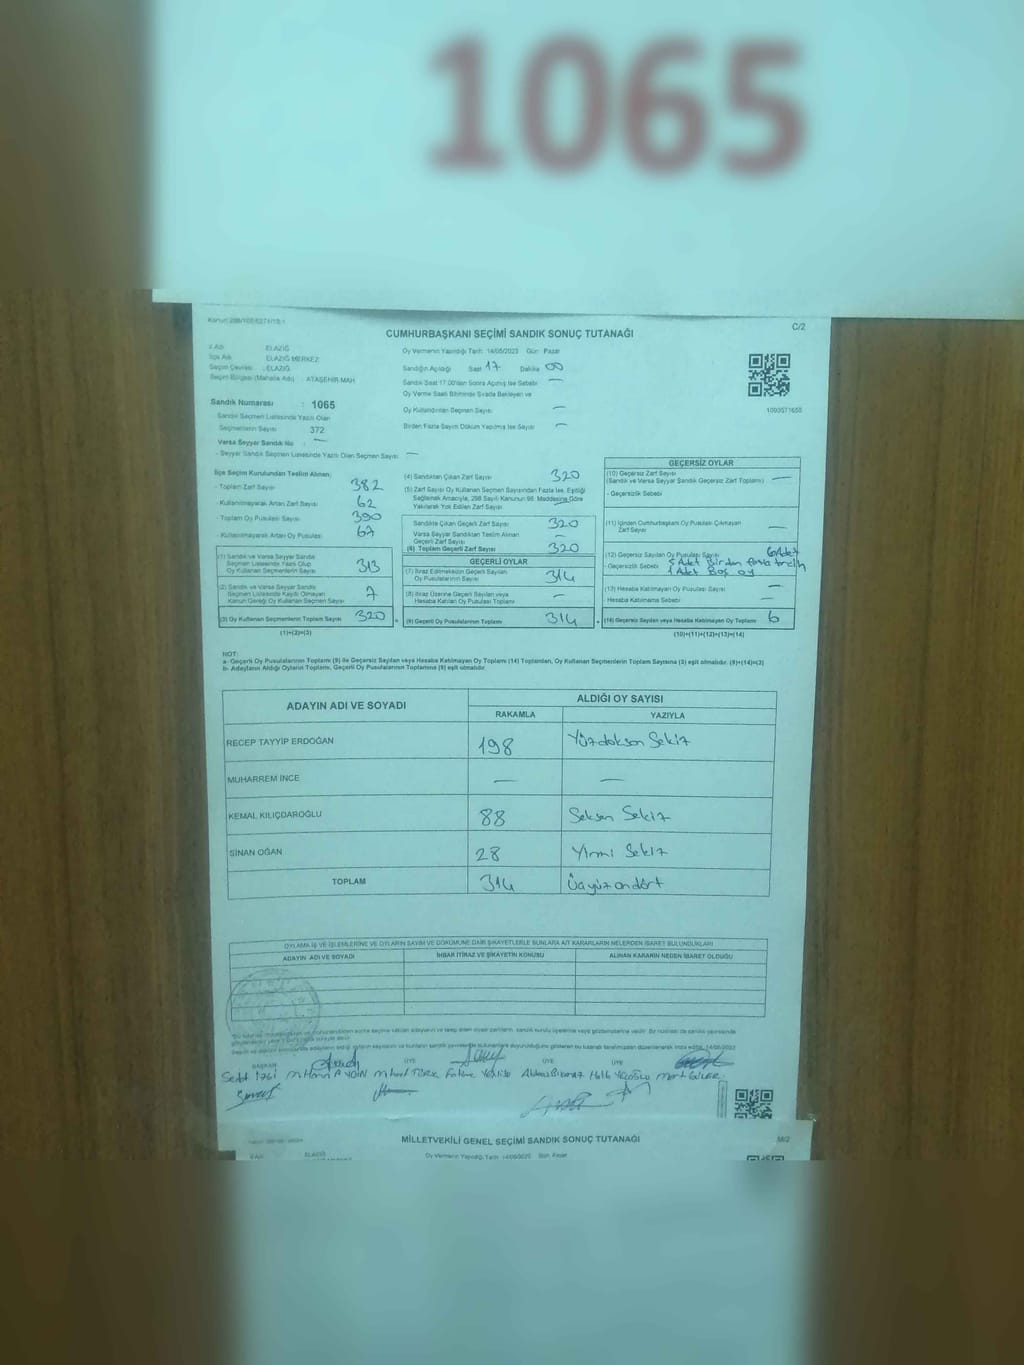 1065
C/2
CUMHURBAŞKANI SEÇİMİ SANDIK SONUÇ TUTANAĞI
ELAZIĞ
Oy Vermenin Yapıldığı Tarih: 14/05/2023 Gün: Pazar
İlçe Adı : ELAZIĞ MERKEZ
Sandığın Açıldığı Saat 17 Dakika 00
Seçim Çevresi : ELAZIĞ
Seçim Bölgesi (Mahalle Adı) : ATAŞEHİR MAH
Sandık Saat 17.00'den Sonra Açılmış İse Sebebi —
Oy Verme Saati Bitiminde Sırada Bekleyen ve
Oy Kullandırılan Seçmen Sayısı —
Birden Fazla Sayım Döküm Yapılmış İse Sayısı —
1093571655
Sandık Numarası : 1065
- Sandık Seçmen Listesinde Yazılı Olan
Seçmenlerin Sayısı 372
Varsa Seyyar Sandık No : —
- Seyyar Sandık Seçmen Listesinde Yazılı Olan Seçmen Sayısı —
İlçe Seçim Kurulundan Teslim Alınan:
- Toplam Zarf Sayısı 382
- Kullanılmayarak Artan Zarf Sayısı 62
- Toplam Oy Pusulası Sayısı 390
- Kullanılmayarak Artan Oy Pusulası 67
(1) Sandık ve Varsa Seyyar Sandık
Seçmen Listesinde Yazılı Olup
Oy Kullanan Seçmenlerin Sayısı 313
(2) Sandık ve Varsa Seyyar Sandık
Seçmen Listesinde Kayıtlı Olmayan
Kanun Gereği Oy Kullanan Seçmen Sayısı 7
(3) Oy Kullanan Seçmenlerin Toplam Sayısı 320
(1)+(2)=(3)
(4) Sandıktan Çıkan Zarf Sayısı 320
(5) Zarf Sayısı Oy Kullanan Seçmen Sayısından Fazla İse, Eşitliği
Sağlamak Amacıyla, 298 Sayılı Kanunun 98. Maddesine Göre
Yakılarak Yok Edilen Zarf Sayısı —
Sandıkta Çıkan Geçerli Zarf Sayısı 320
Varsa Seyyar Sandıktan Teslim Alınan
Geçerli Zarf Sayısı —
(6) Toplam Geçerli Zarf Sayısı 320
GEÇERLİ OYLAR
(7) İtiraz Edilmeksizin Geçerli Sayılan
Oy Pusulalarının Sayısı 314
(8) İtiraz Üzerine Geçerli Sayılan veya
Hesaba Katılan Oy Pusulası Toplamı —
(9) Geçerli Oy Pusulalarının Toplamı 314
GEÇERSİZ OYLAR
(10) Geçersiz Zarf Sayısı
(Sandık ve Varsa Seyyar Sandık Geçersiz Zarf Toplamı) —
- Geçersizlik Sebebi
(11) İçinden Cumhurbaşkanı Oy Pusulası Çıkmayan
Zarf Sayısı —
(12) Geçersiz Sayılan Oy Pusulası Sayısı 6 Adet
- Geçersizlik Sebebi 5 Adet Birden fazla tercih
1 Adet Boş oy
(13) Hesaba Katılmayan Oy Pusulası Sayısı —
- Hesaba Katılmama Sebebi —
(14) Geçersiz Sayılan veya Hesaba Katılmayan Oy Toplamı 6
(10)+(11)+(12)+(13)=(14)
NOT:
a- Geçerli Oy Pusulalarının Toplamı (9) ile Geçersiz Sayılan veya Hesaba Katılmayan Oy Toplamı (14) Toplamları, Oy Kullanan Seçmenlerin Toplam Sayısına (3) eşit olmalıdır. (9)+(14)=(3)
b- Adayların Aldığı Oyların Toplamı, Geçerli Oy Pusulalarının Toplamına (9) eşit olmalıdır.
ADAYIN ADI VE SOYADI ALDIĞI OY SAYISI
RAKAMLA YAZIYLA
RECEP TAYYİP ERDOĞAN 198 Yüzdoksan Sekiz
MUHARREM İNCE — —
KEMAL KILIÇDAROĞLU 88 Seksen Sekiz
SİNAN OĞAN 28 Yirmi Sekiz
TOPLAM 314 Üçyüzondört
OYLAMA İŞ VE İŞLEMLERİNE VE OYLARIN SAYIM VE DÖKÜMÜNE DAİR ŞİKAYETLERLE BUNLARA AİT KARARLARIN NELERDEN İBARET BULUNDUKLARI
ADAYIN ADI VE SOYADI İHBAR İTİRAZ VE ŞİKAYETİN KONUSU ALINAN KARARIN NEDEN İBARET OLDUĞU
BAŞKAN ÜYE ÜYE ÜYE
MİLLETVEKİLİ GENEL SEÇİMİ SANDIK SONUÇ TUTANAĞI
M/2
ELAZIĞ
Oy Vermenin Yapıldığı Tarih: 14/05/2023 Gün: Pazar